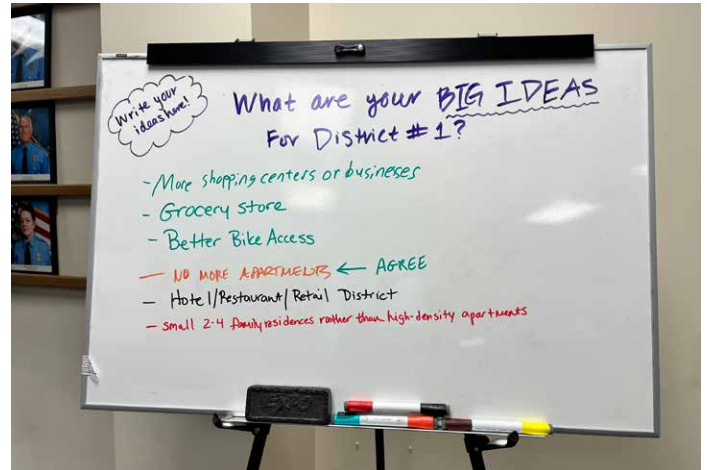 Write your
ideas here!
What are your BIG IDEAS
For District # 1?
- More shopping centers or busineses
- Grocery store
- Better Bike Access
- NO MORE APARTMENTS ← AGREE
- Hotel/Restaurant/Retail District
- small 2-4 family residences rather than high-density apartments
EXPO